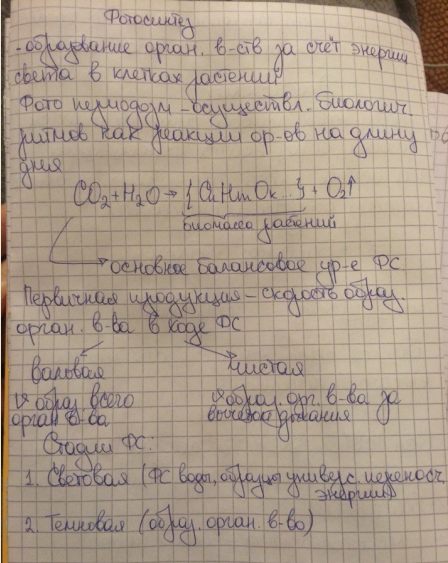 Фотосинтез
- образвание орган. в-ств за счёт энергии
света в клетках растений
Фото периодизм - осуществл. биологич.
ритмов как реакции ор-ов на длину
дня
CO₂ + H₂O → { CnHmOk... } + O₂↑
биомасса растений
основное балансовое ур-е ФС
Первичная продукция - скорость образ.
орган. в-ва в ходе ФС
валовая чистая
V образ. всего V образ. орг. в-ва за
орган в-ва вычетом дыхания
Стадии ФС:
1. Световая (ФС воды, образ универс. переносч.
энергии)
2. Темновая (образ. орган. в-во)